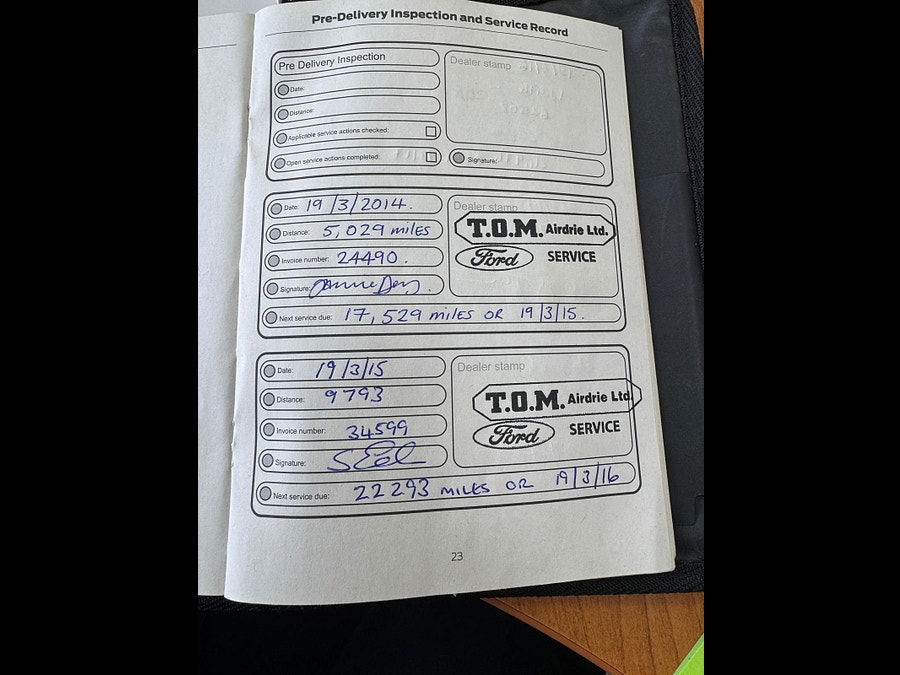 Pre-Delivery Inspection and Service Record
Pre Delivery Inspection
Dealer stamp
Date:
Distance:
Applicable service actions checked:
Open service actions completed:
Signature:
Date: 19/3/2014.
Dealer stamp
T.O.M. Airdrie Ltd.
Distance: 5,029 miles
Ford SERVICE
Invoice number: 24490.
Signature:
Next service due: 17,529 miles OR 19/3/15.
Date: 19/3/15
Dealer stamp
Distance: 9793
T.O.M. Airdrie Ltd.
Invoice number: 34599
Ford SERVICE
Signature:
Next service due: 22293 MILES OR 19/3/16
23